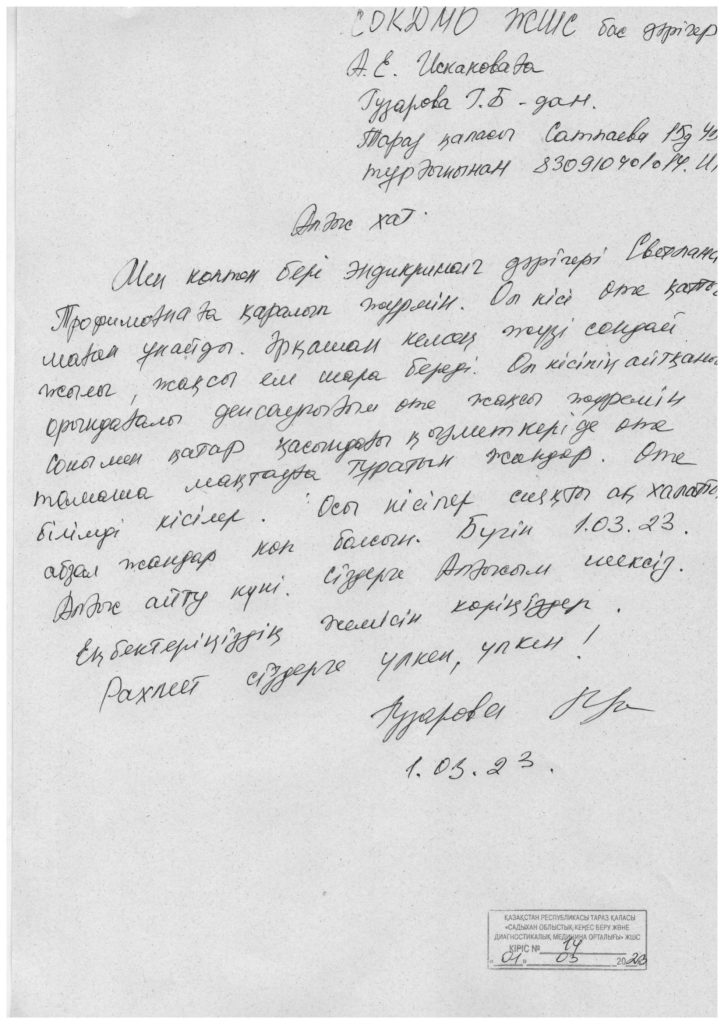 СОКДМО ЖШС бас дәрігер
А.Е. Искаковаға
Гузарова Г.Б - дан.
Тараз қаласы Сатпаева
тұрғынынан
Алғыс хат.
Мен көптен бері эндикринолг дәрігері Светлана
Трофимовнаға қаралып жүрмін. Ол кісі өте қатты
маған ұнайды. Әрқашан келсең жүзі сондай
жылы, жақсы ем шара береді. Ол кісінің айтқаны
орындағалы денсаулығым өте жақсы жүрмін
Сонымен қатар қасындағы қызметкері де өте
тамаша мақтауға тұратын жандар. Өте
білімді кісілер. Осы кісілер сияқты ақ халатты,
абзал жандар көп болсын. Бүгін 1.03.23.
Алғыс айту күні. Сіздерге Алғысым шексіз.
Еңбектеріңіздің жемісін көріңіздер.
Рахмет сіздерге үлкен, үлкен!
Гузарова
1.03.23.
ҚАЗАҚСТАН РЕСПУБЛИКАСЫ ТАРАЗ ҚАЛАСЫ
«САДЫХАН ОБЛЫСТЫҚ КЕҢЕС БЕРУ ЖӘНЕ
ДИАГНОСТИКАЛЫҚ МЕДИЦИНА ОРТАЛЫҒЫ» ЖШС
КІРІС № 14
«01» 03 2023